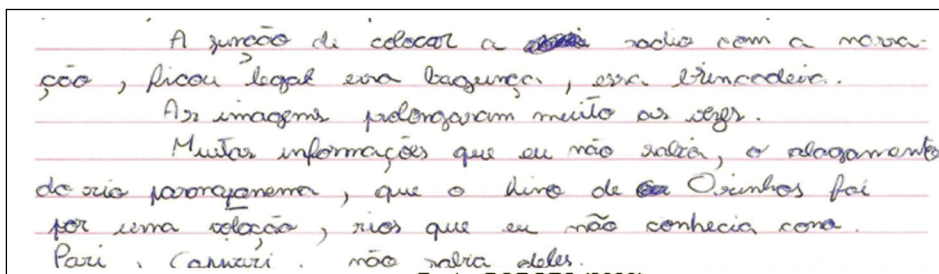 A junção de colocar a radio com a narra-
ção, ficou legal essa bagunça, essa brincadeira.
As imagens prolongaram muito as vezes.
Muitas informações que eu não sabia, o alagamento
do rio paranapanema, que o hino de Ourinhos foi
por uma votação, rios que eu não conhecia como.
Pari, , não sabia deles.